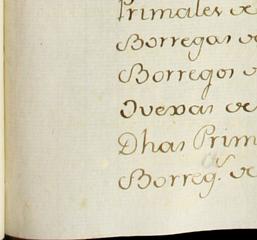 Primales de
Borregas de
Borregos
Ovexas de
Dhas Prim
Borreg.ˢ de